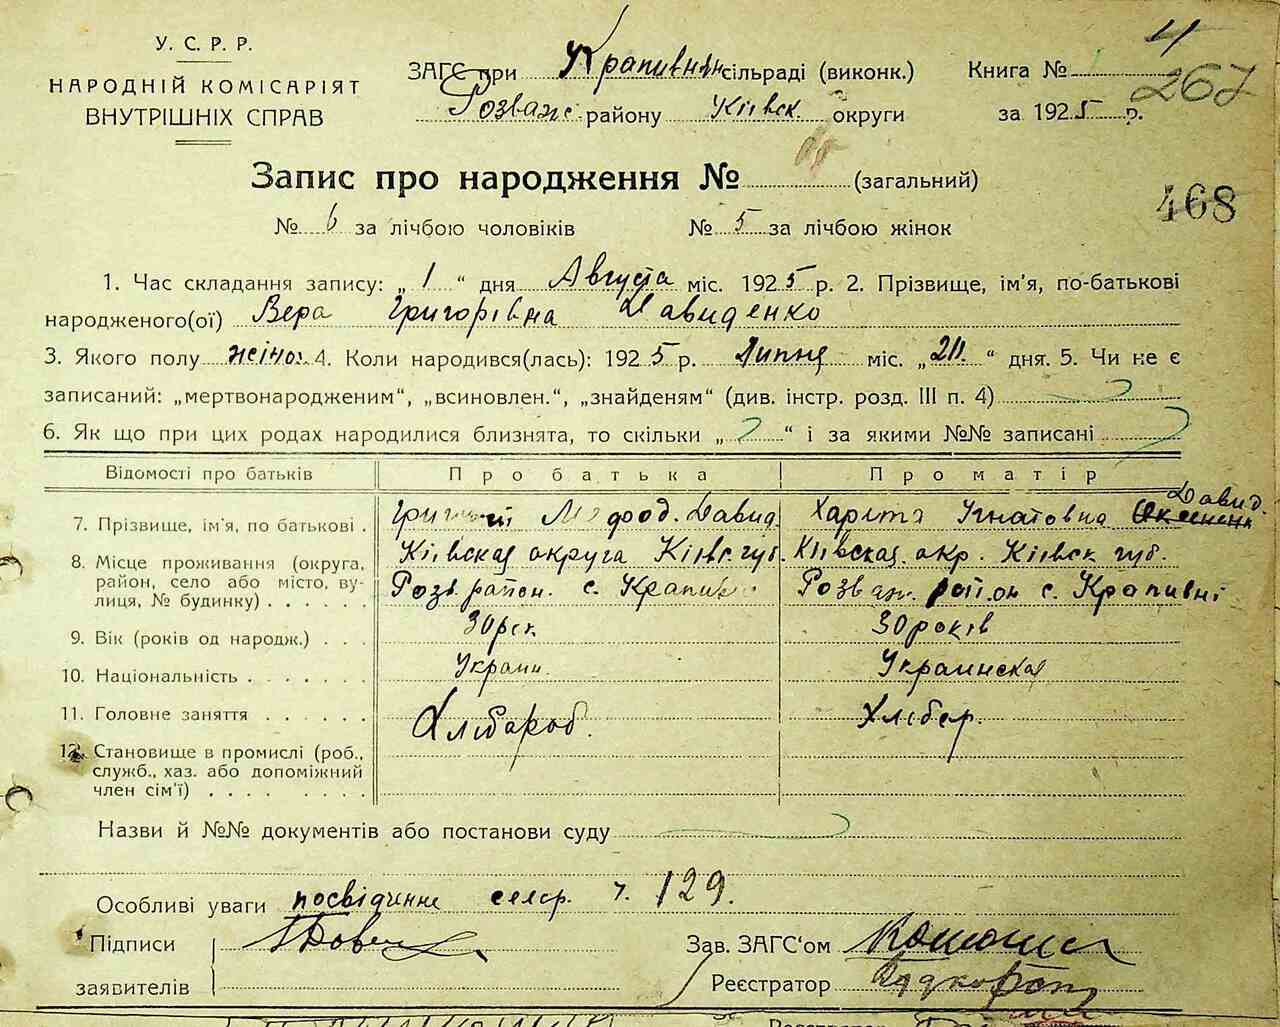 У. С. Р. Р.
НАРОДНІЙ КОМІСАРІЯТ
ВНУТРІШНІХ СПРАВ
ЗАГС при Крапивнян сільраді (виконк.)
Розваж. району Київск. округи
Книга № 4
267
за 1925 р.
Запис про народження № (загальний)
468
№ 6 за лічбою чоловіків № 5 за лічбою жінок
1. Час складання запису: „ 1 “ дня Августа міс. 1925 р. 2. Прізвище, ім'я, по-батькові
народженого(ої) Вера Григорівна Давиденко
3. Якого полу жіноч. 4. Коли народився(лась): 1925 р. Липня міс. „ “ дня. 5. Чи не є
записаний: „мертвонародженим“, „всиновлен.“, „знайденям“ (див. інстр. розд. III п. 4)
6. Як що при цих родах народилися близнята, то скільки „ “ і за якими №№ записані
Відомості про батьків Про батька Про матір
7. Прізвище, ім'я, по батькові . Давид. Харітя Ігнатовна Давид.
8. Місце проживання (округа, район, село або місто, вулиця, № будинку) . . . . . .
Кіівская округа Кіівс. губ. Розв. район. с. Крапив
Кіівская окр. Кіівск губ. Розваж. район с. Крапивні
9. Вік (років од народж.) . . . 30 рок. 30 років
10. Національність . . . . . Украин. Украинская
11. Головне заняття . . . . . . Хлібароб. Хлібер.
12. Становище в промислі (роб., служб., хаз. або допоміжний член сім'ї) . . . . . . . .
Назви й №№ документів або постанови суду
Особливі уваги посвідчення селср. ч. 129.
Підписи
заявителів
Зав. ЗАГС'ом
Реєстратор